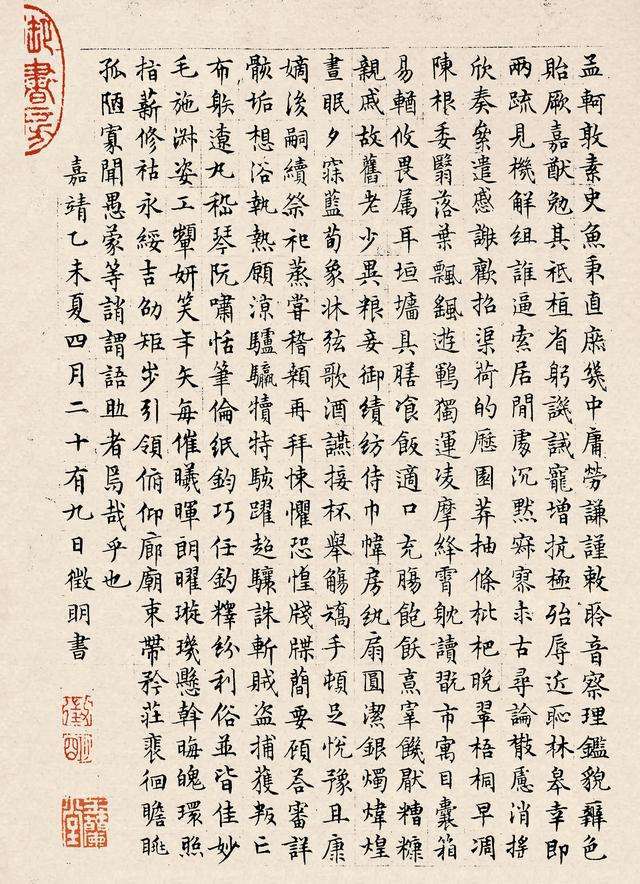 御書房
孟軻敦素史魚秉直庶幾中庸勞謙謹敕聆音察理鑑貌辨色
貽厥嘉猷勉其祗植省躬譏誡寵增抗極殆辱近恥林皋幸即
兩疏見機解組誰逼索居閒處沉默寂寥求古尋論散慮消搖
欣奏累遣慼謝歡招渠荷的歷園莽抽條枇杷晚翠梧桐早凋
陳根委翳落葉飄颻遊鵾獨運凌摩絳霄耽讀翫市寓目囊箱
易輶攸畏属耳垣墻具膳飡飯適口充腸飽飫烹宰饑厭糟糠
親戚故舊老少異粮妾御績紡侍巾幃房紈扇圓潔銀燭煒煌
晝眠夕寐藍荀象牀弦歌酒讌接杯舉觴矯手頓足悅豫且康
嫡後嗣續祭祀蒸嘗稽顙再拜悚懼恐惶牋牒簡要顧答審詳
骸垢想浴執熱願涼驢驘犢特駭躍超驤誅斬賊盜捕獲叛亡
布躲遼丸嵇琴阮嘯恬筆倫紙鈞巧任釣釋紛利俗並皆佳妙
毛施淑姿工顰妍笑年矢每催曦暉朗曜璇璣懸斡晦魄環照
指薪修祜永綏吉劭矩步引領俯仰廊廟束帶矜莊裴徊瞻眺
孤陋寡聞愚蒙等誚謂語助者焉哉乎也
嘉靖乙未夏四月二十有九日徵明書
徵明
玉蘭堂